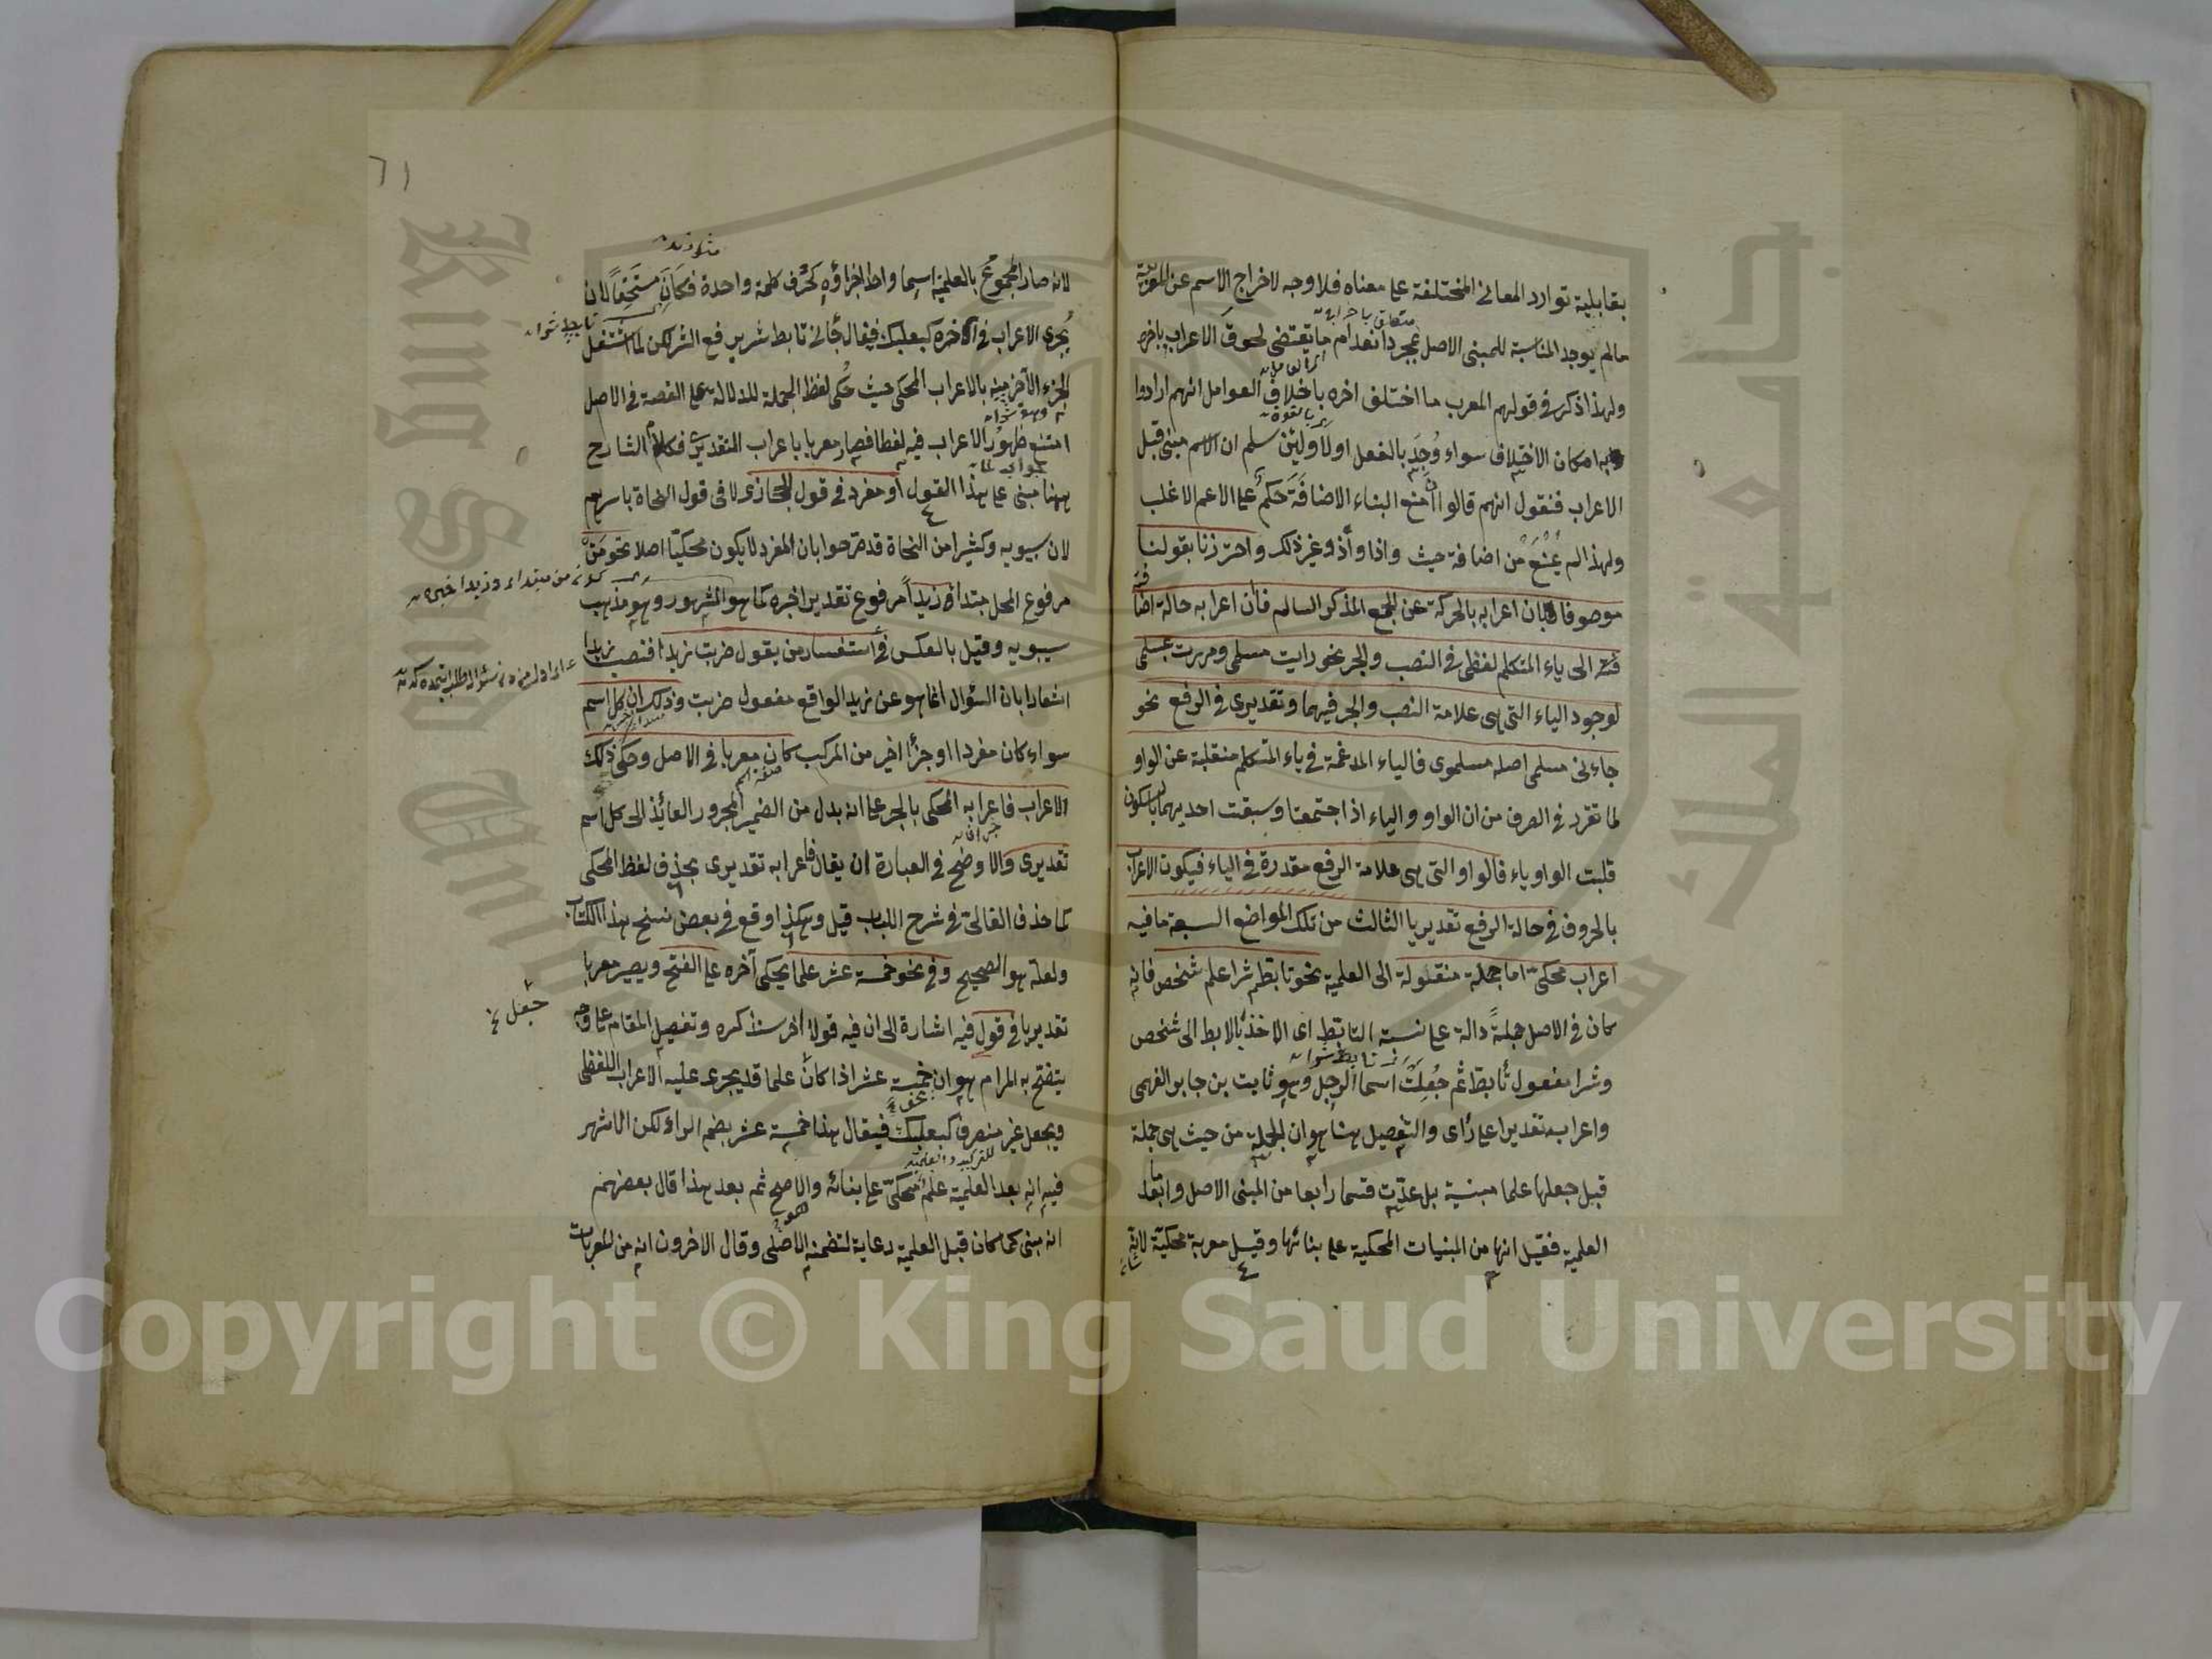 بقابلية توارد المعاني المختلفة على معناه فلا وجه لاخراج الاسم عن المعربية
مالم يوجد المناسبة للمبنى الاصل بمجرد انعدام ما يقتضى لحوق الاعراب باخره
ولهذا ذكر في قولهم المعرب ما اختلف اخره باختلاف العوامل انهم ارادوا
به امكان الاختلاف سواء وُجِدَ بالفعل اولا ولئن سلم ان الاسم مبنى قبل
الاعراب فنقول انهم قالوا منع البناء الاضافة حكم على الاعم الاغلب
ولهذا لم يُمْنَعْ من اضافة حيث واذا واذ وغير ذلك واحترزنا بقولنا
موصوفا بان اعرابه بالحركة عن الجمع المذكر السالم فان اعرابه حالة اضا
فته الى ياء المتكلم لفظى في النصب والجر نحو رايت مسلمى ومررت بمسلمى
لوجود الياء التى هى علامة النصب والجر فيهما وتقديرى في الرفع نحو
جاءنى مسلمى اصله مسلموى فالياء المدغمة في ياء المتكلم منقلبة عن الواو
لما تقرر في الصرف من ان الواو والياء اذا اجتمعتا وسبقت احديهما بالسكون
قلبت الواو ياء فالواو التى هى علامة الرفع مقدرة في الياء فيكون الاعراب
بالحروف في حالة الرفع تقديريا الثالث من تلك المواضع السبعة ما فيه
اعراب محكىّ اما جملة منقولة الى العلمية نحو تابط شرا علم شخص فانه
كان في الاصل جملةً دالة على نسبة التابط اى الاخذ بالابط الى شخص
وشرا مفعول تابط ثم جُعِلَتْ اسما لرجل وهو ثابت بن جابر الفهمى
واعرابه تقديرا على راى والتفصيل هنا هو ان الجملة من حيث هى جملة
قبل جعلها علما مبنية بل عدّت قسما رابعا من المبنى الاصل واما بعد
العلمية فقيل انها من المبنيات المحكية على بنائها وقيل معربة محكيّة لانه
٦١
لانه صار المجموعُ بالعلمية اسما واحدا اجزاؤه كحرف كلمة واحدة فكان مستحقا لان
يُجرى الاعراب في آخره كبعلبك فيقال جاءنى تابط شر برفع الشر لكن لما اشتغل
الجزء الآخر منه بالاعراب المحكى حيث حُكى لفظ الجملة للدلالة على القصة في الاصل
امتنع ظهورُ الاعراب فيه لفظا فصار معربا باعراب التقديرى فكلام الشارح
ههنا مبنى على هذا القول أو مفرد في قول الحجازى لا في قول النحاة باسرهم
لان سيبويه وكثيرا من النحاة قد صرحوا بان المفرد لا يكون محكيّا اصلا نحو مَنْ
مرفوع المحل مبتداء زيداً مرفوع تقديرا خبره كما هو المشهور وهو مذهب
سيبويه وقيل بالعكس في استفسار من يقول ضربت زيدا فنصب زيدا
اشعارا بان السؤال انما هو عن زيد الواقع مفعول ضربت وذلك ان كل اسم
سواء كان مفردا او جزأ اخير من المركب كان معربا في الاصل وحكى ذلك
الاعراب فاعرابه المحكى بالجر على انه بدل من الضمير المجرور العائد الى كل اسم
تقديرى والاوضح في العبارة ان يقال فاعرابه تقديرى بحذف لفظ المحكى
كما حذف القالى في شرح اللباب قيل وهكذا وقع في بعض نسخ هذا الكتاب
ولعله هو الصحيح وفي نحو خمسة عشر علما يحكى آخره على الفتح ويصير معربا
تقديريا في قول فيه اشارة الى ان فيه قولا آخر سنذكره وتفصيل المقام على وجه
يتضح به المرام هو ان خمسة عشر اذا كان علما قد يجرى عليه الاعراب اللفظى
ويجعل غير منصرف كبعلبك فيقال هذا خمسة عشر بضم الراء لكن الاشهر
فيه انه بعد العلمية علم محكىّ على بنائه والاصح ثم بعد هذا قال بعضهم
انه مبنى كما كان قبل العلمية رعاية لتضمنه الاصلى وقال الاخرون انه من المعربات
جعل
Copyright © King Saud University
جامعة الملك سعود
King Saud University